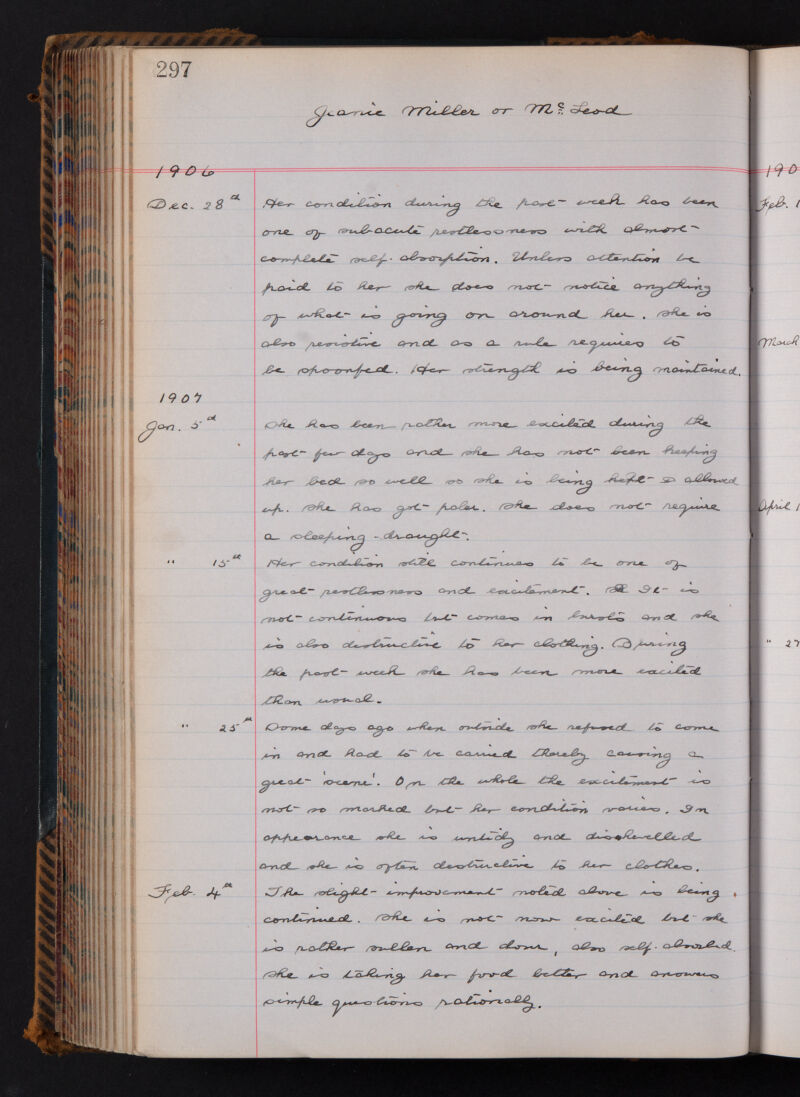 297
Jeanie Miller or Mc Leod
1906
Dec. 28th Her condition during the past week has been
one of subacute restlessness with almost
complete self-absorption. Unless attention be
paid to her she does not notice anything
of what is going on around her. She is
also resistive and as a rule requires to
be spoonfed. Her strength is being maintained.
1907
Jan. 5th She has been rather more excited during the
past few days and she has not been keeping
her bed so well so she is being kept allowed
up. She has got paler. She does not require
a sleeping-draught.
" 15th Her condition still continues to be one of
great restlessness and excitement. It is
not continuous but comes in bursts and she
is also destructive to her clothing. During
the past week she has been more excited
than usual.
" 25th Some days ago when outside she refused to come
in and had to be carried thereby causing a
great 'scene'. On the whole the excitement is
not so marked but her condition varies. In
appearance she is untidy and dishevelled
and she is often destructive to her clothes.
Feb. 4th The slight improvement noted above is being
continued. She is not now excited but she
is rather sullen and dour, also self-absorbed.
She is taking her food better and answers
simple questions rationally.
190
Feb. 1
March
April 1
" 27